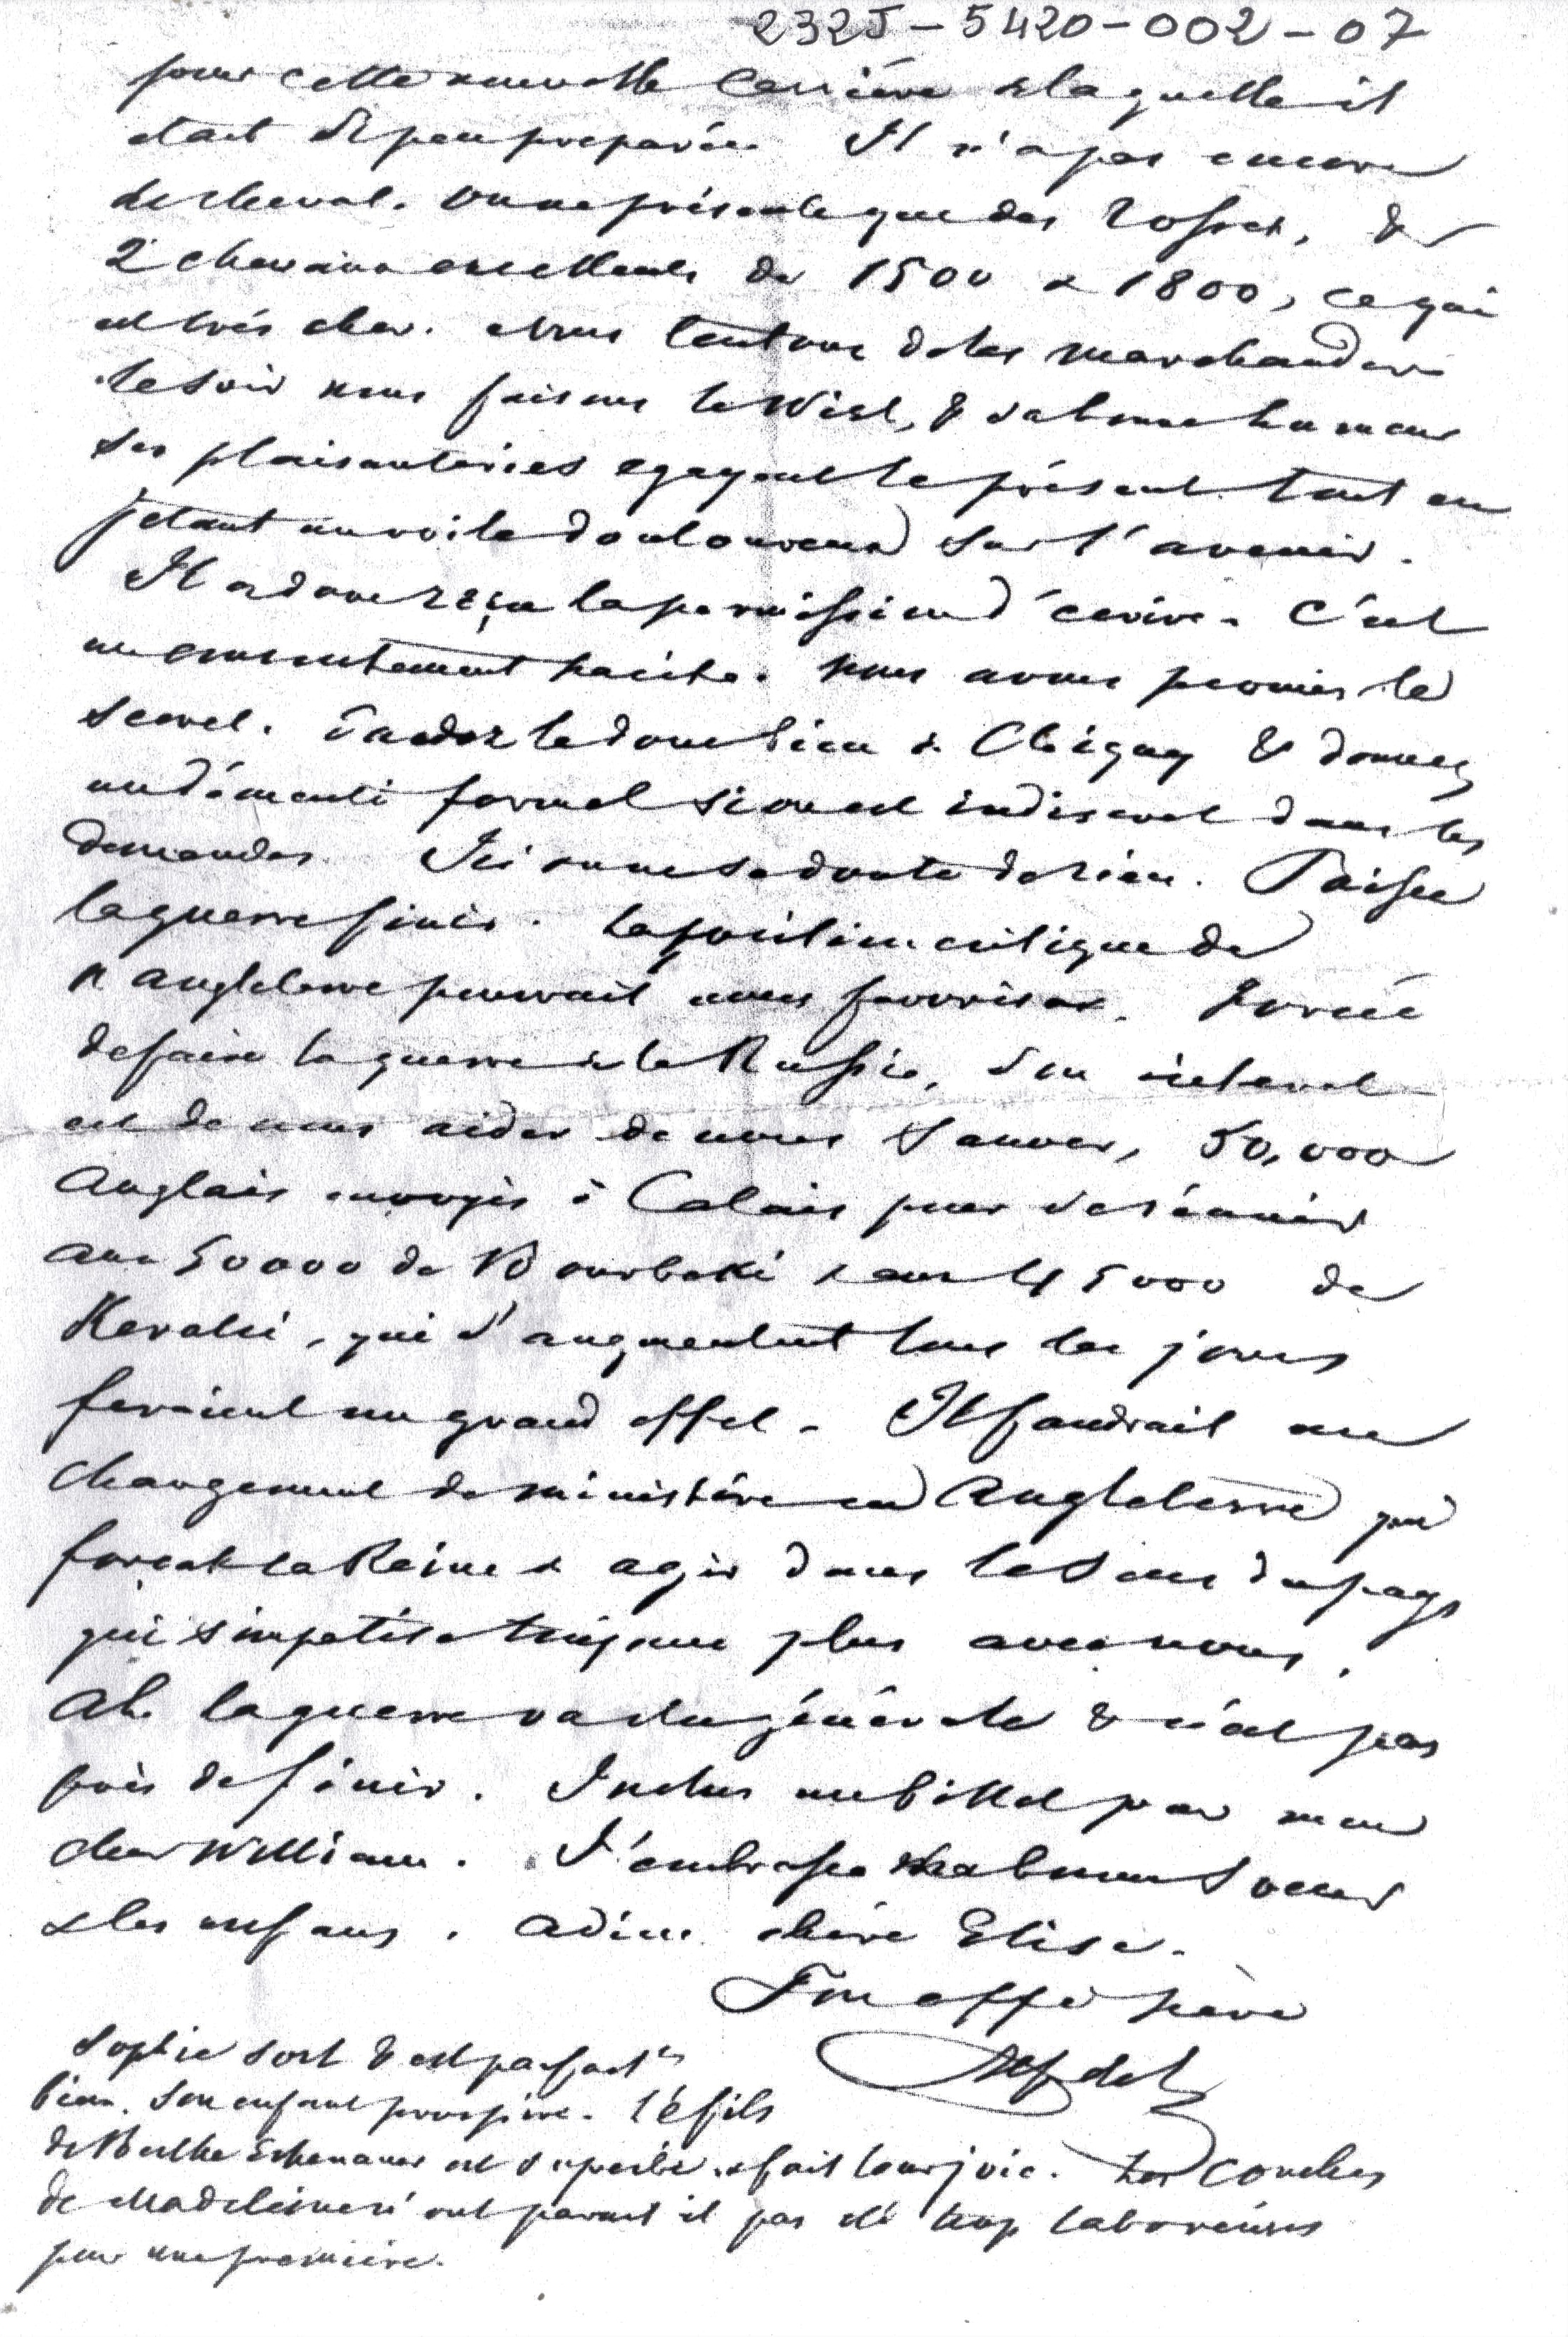 232J-5420-002-07
pour cette nouvelle carrière à laquelle il
etait si peu preparée Il n'a pas encore
de cheval. on ne présente que des rosses, &
2 chevaux excellents de 1500 à 1800, ce qui
est très cher. Nous tentons de les marchander
le soir nous faisons le Wist, & sa bonne humeur
ses plaisanteries egayent le présent tout en
jetant un voile douloureux sur l'avenir.
Il a donc reçu la permission d'écrire. C'est
un consentement tacite. Nous avons promis le
secret. Gardez le donc bien à Cligny & donnez
un démenti formel si on est indiscret dans les
demandes. Ici on ne se doute de rien. Puisse
la guerre finir. La position critique de
l'angleterre pourrait nous favoriser. Forcée
de faire la guerre à la Russie, son interet
est de nous aider de nous sauver, 50,000
Anglais envoyés à Calais pour se réunir
aux 50000 de Bourbaki & aux 45000 de
Keratri, qui s'augmentent tous les jours
feraient un grand effet. Il faudrait un
changement de ministère en Angleterre qui
forcat la Reine à agir dans le sens du pays
qui simpatise toujours plus avec nous.
Ah. la guerre va générale & n'est pas
près de finir. Inclus un billet pour mon
cher William. J'embrasse ma bonne soeur
& les enfans. Adieu chère Elise.
Ton affé père
Alf
Sophie sort & est parfaitt
bien. Son enfant prospère. Le fils
de Berthe Eschenauer est superbe & fait leur joie. Les couches
de Madeleine n'ont parait il pas été trop laborieuses
pour une première.